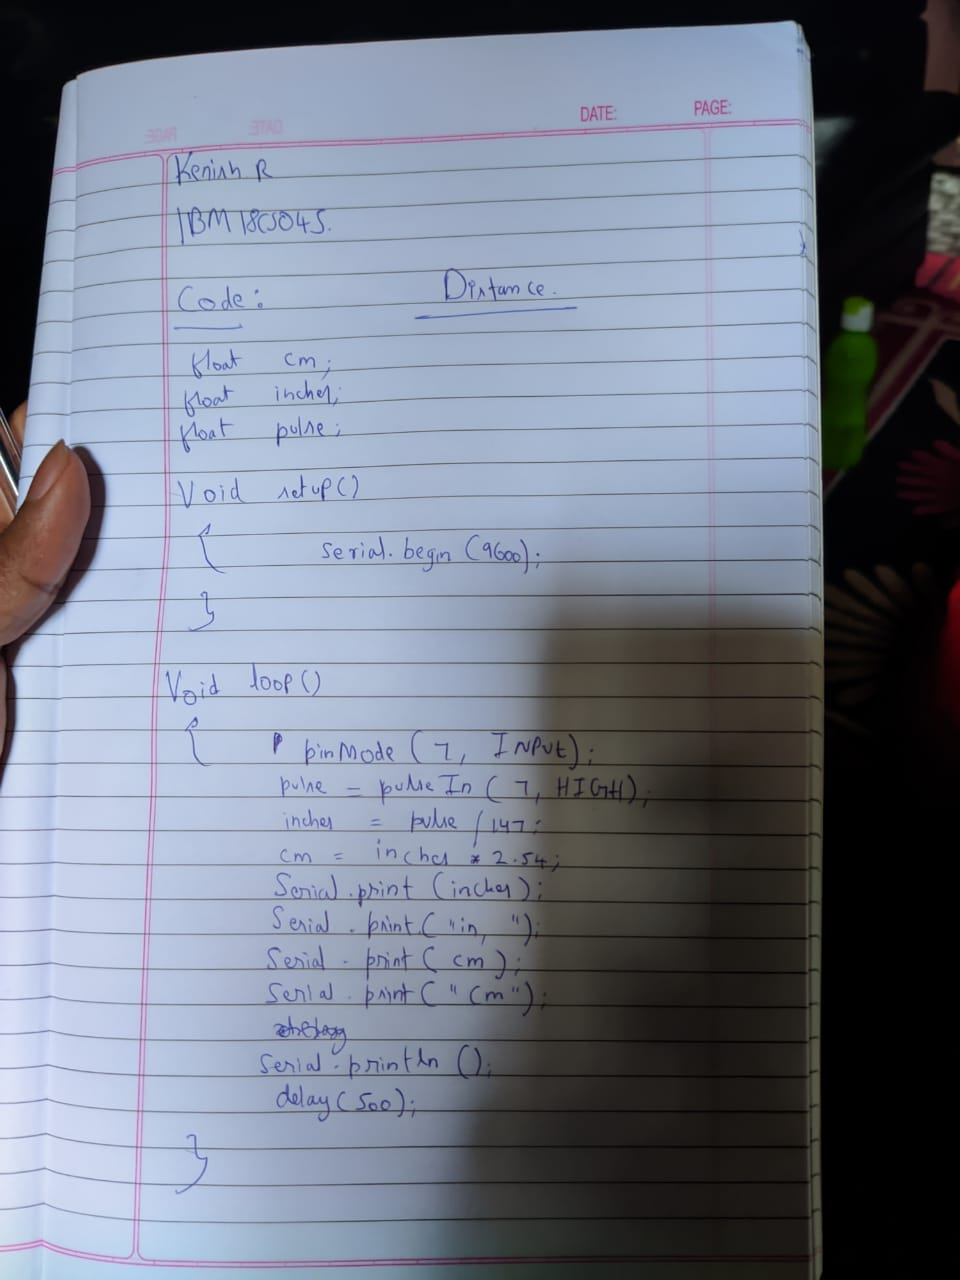 DATE: PAGE:
Kenish R
1BM18CS045.
Code: Distance.
float cm;
float inches;
float pulse;
Void setup()
{ Serial.begin (9600);
}
Void loop()
{ pinMode (7, INPUT);
pulse = pulse In (7, HIGH);
inches = pulse / 147;
cm = inches * 2.54;
Serial.print (inches);
Serial.print ("in, ");
Serial.print (cm);
Serial.print ("cm");
Serial.println ();
delay (500);
}